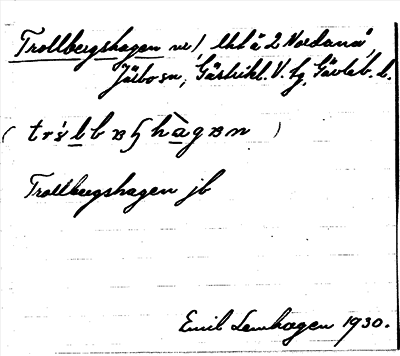 Trollbergshagen nr 1, lht å 2 Nordanå,
Järbo sn, Gästrikl. V. tg, Gävleb. l.
( trs̀lbɞhhàgɞn )
Trollbergshagen jb
Emil Lennhagen 1930.